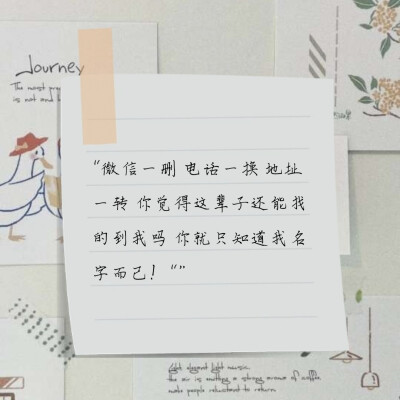 Journey
is not and
"微信一删 电话一换 地址
一转 你觉得这辈子还能找
的到我吗 你就只知道我名
字而己！""
light elegant light music.
the air is emitting a strong aroma of coffee.
make people reluctant to return